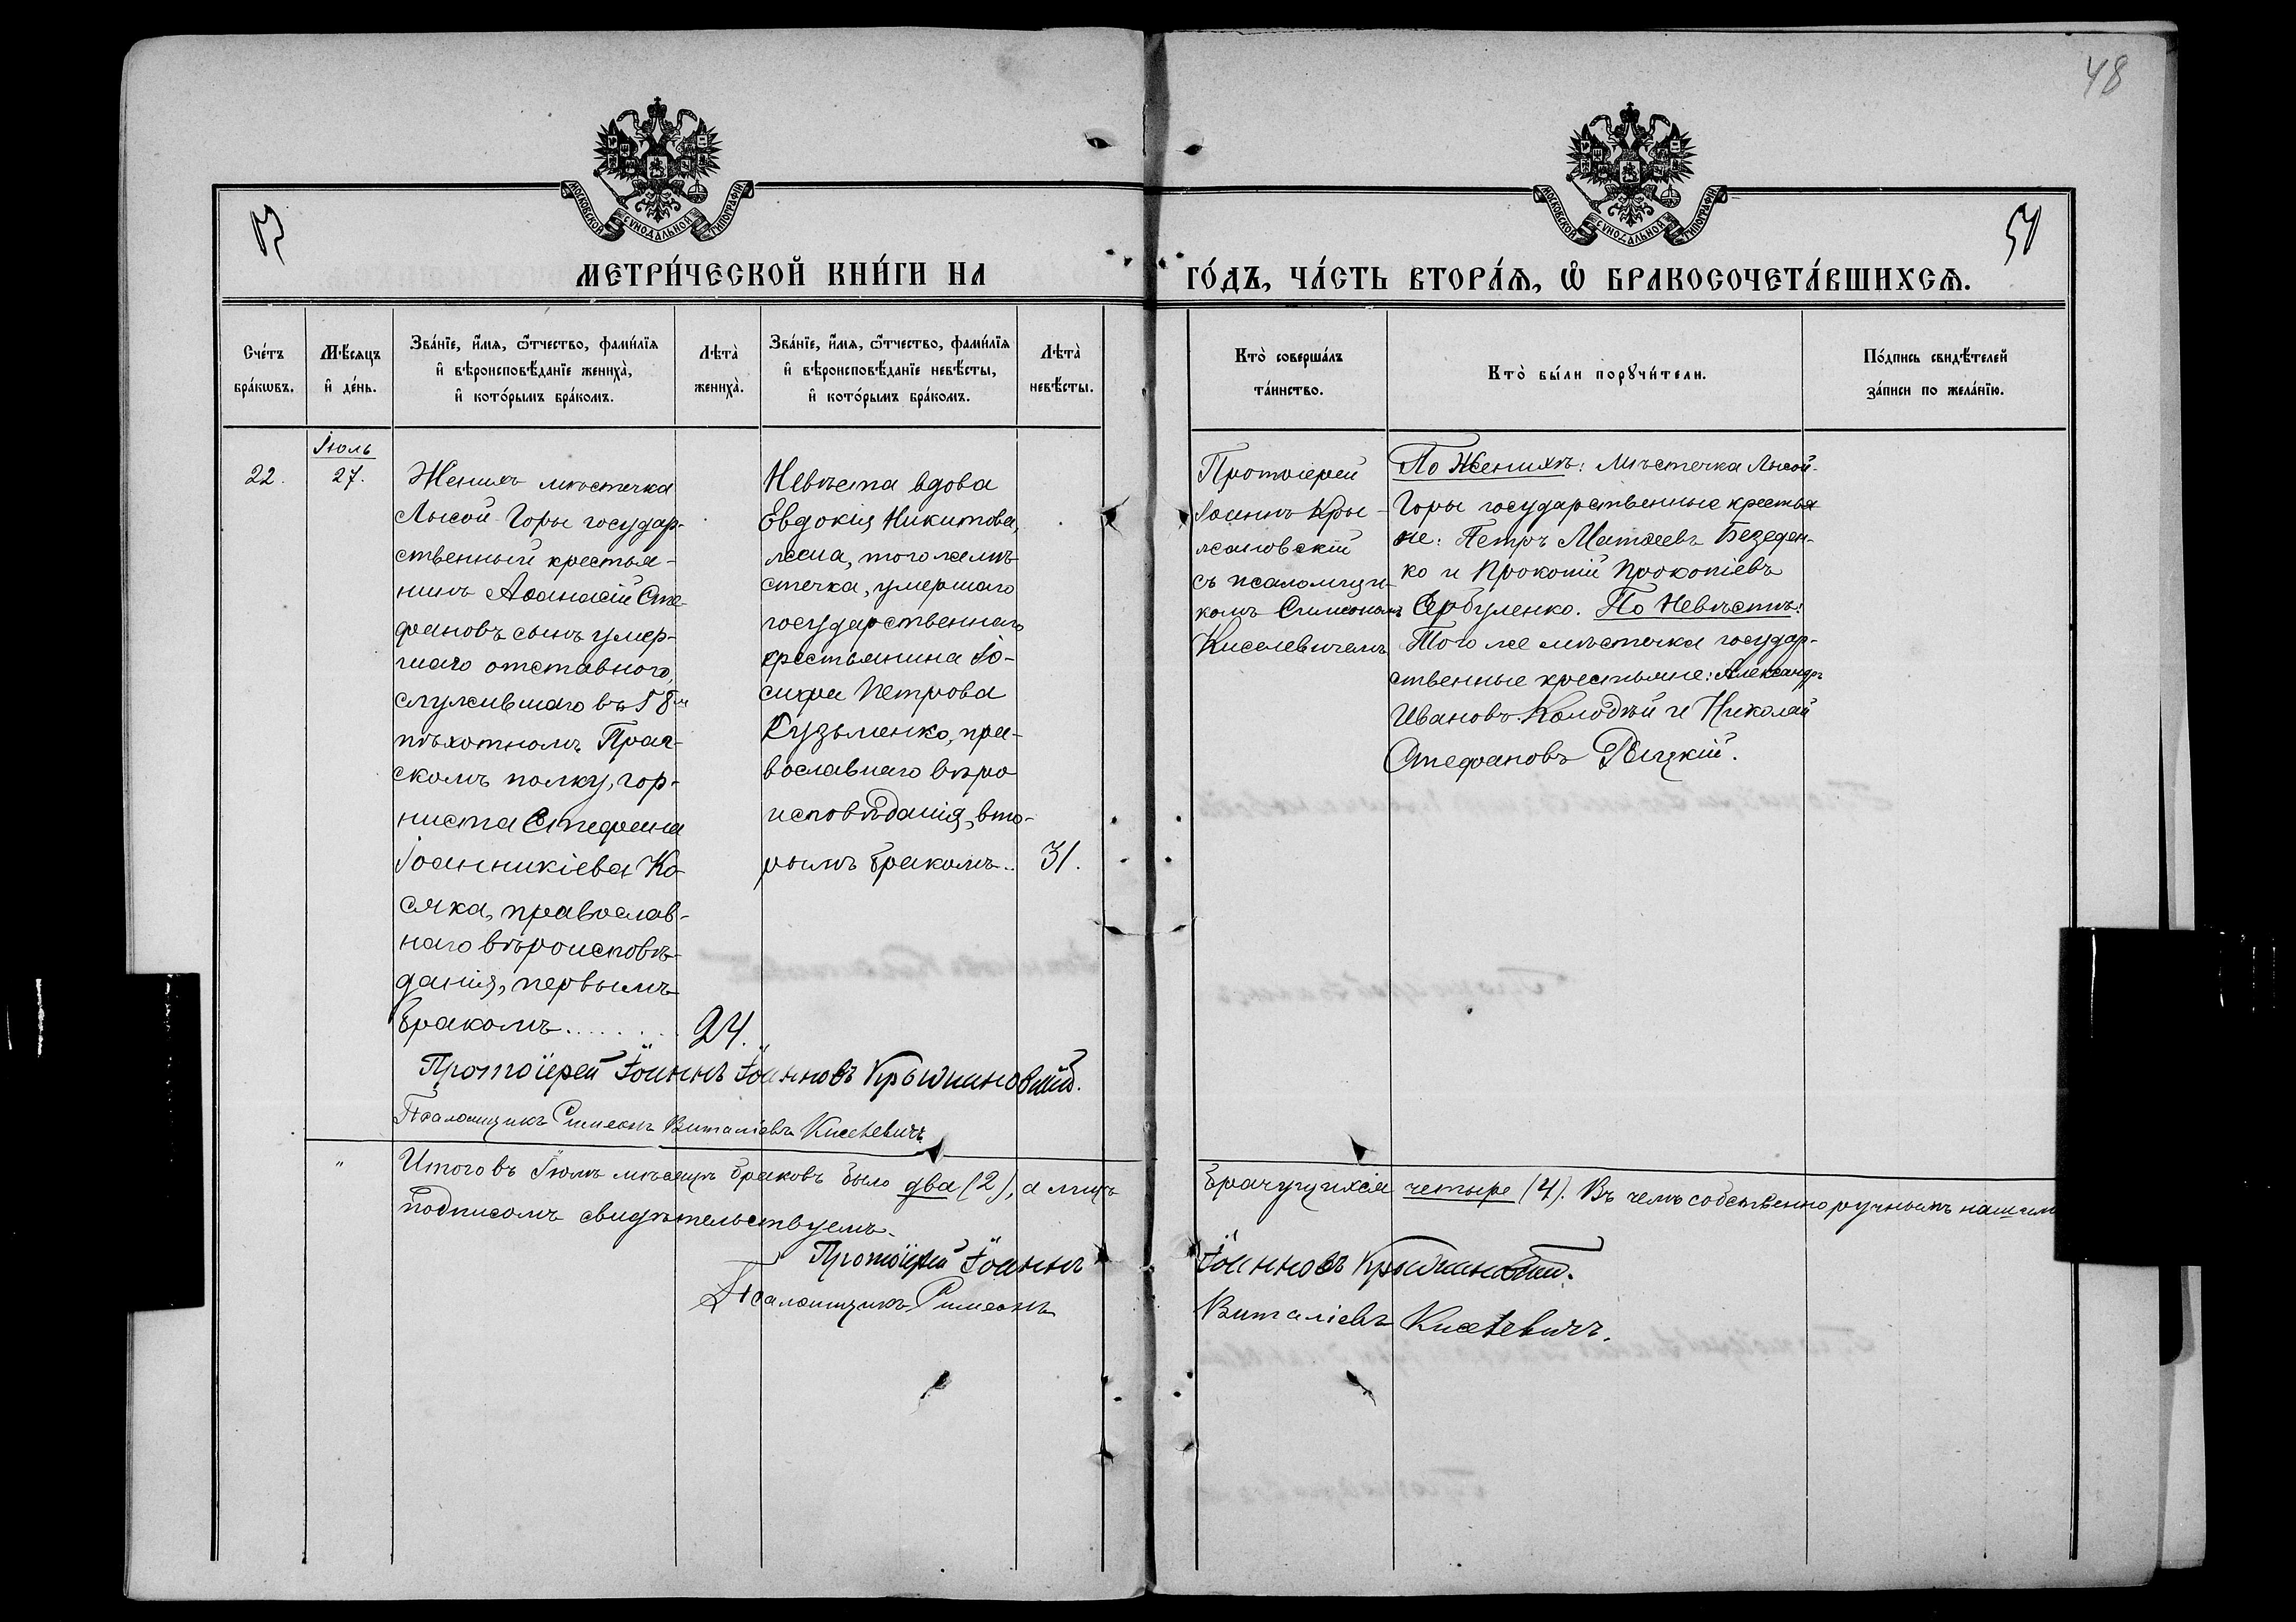 48
МОСКОВСКОЙ СѴНОДАЛЬНОЙ ТИПОГРАФІИ
МОСКОВСКОЙ СѴНОДАЛЬНОЙ ТИПОГРАФІИ
МЕТРИ́ЧЕСКОЙ КНИ́ГИ НА
ГО́ДЪ, ЧА́СТЬ ВТОРА́Ѧ, Ѽ БРАКОСОЧЕТА́ВШИХСѦ.
Сче́тъ
бра́кѡвъ.
Мѣ́сяцъ
и҆ де́нь.
Зва́нїе, и҆́мѧ, ѻ҆́тчество, фами́лїѧ
и҆ вѣроисповѣ́данїе жениха̀,
и҆ кото́рымъ бра́комъ.
Лѣта̀
жениха̀.
Зва́нїе, и҆́мѧ, ѻ҆́тчество, фами́лїѧ
и҆ вѣроисповѣ́данїе невѣ́сты,
и҆ кото́рымъ бра́комъ.
Лѣта̀
невѣ́сты.
Кто̀ соверша́лъ
та́инство.
Кто̀ бы́ли порꙋчи́тели.
По́дпись свидѣ́телей
за́писи по жела́нїю.
Іюль
22.
27.
Женихъ мѣстечка
Лысой-Горы государ-
ственный крестья-
нинъ Аѳанасій Сте-
фановъ сынъ умер-
шаго отставного,
служившаго въ 58м
пѣхотномъ Праг-
скомъ полку, гор-
ниста Стефана
Іоанникіева Ко-
сяка, православ-
наго вѣроисповѣ-
данія, первымъ
бракомъ........
24.
Невѣста вдова
Евдокія Никитова,
жена, того же мѣ-
стечка, умершаго
государственнаго
крестьянина Іо-
сифа Петрова
Кузьменко, пра-
вославнаго вѣро
исповѣданія, вто-
рымъ бракомъ..
31.
Протоіерей
Іоаннъ Кры-
жановскій
съ псаломщи-
комъ Симеономъ
Киселевичемъ
По Женихѣ: мѣстечка Лысой-
Горы государственные крестья
не: Петръ Матѳеевъ Безеден-
ко и Прокопій Прокопіевъ
Сербуленко. По Невѣстѣ:
Того же мѣстечка государ-
ственные крестьяне: Александръ
Ивановъ Колодѣй и Николай
Стефановъ
Протоїерей Їоаннъ Їоанновъ Крыжановскій.
Псаломщикъ Симеонъ Виталіевъ Киселевичъ
" Итого въ Іюлѣ мѣсяцѣ браковъ было два (2), а лицъ
брачущихся четыре (4). Въ чемъ собственноручнымъ нашим
подписомъ свидѣтельствуемъ.
Протоїерей Їоаннъ
Їоанновъ Крыжановскій.
Псаломщикъ Симеонъ
Виталіевъ Киселевичъ.